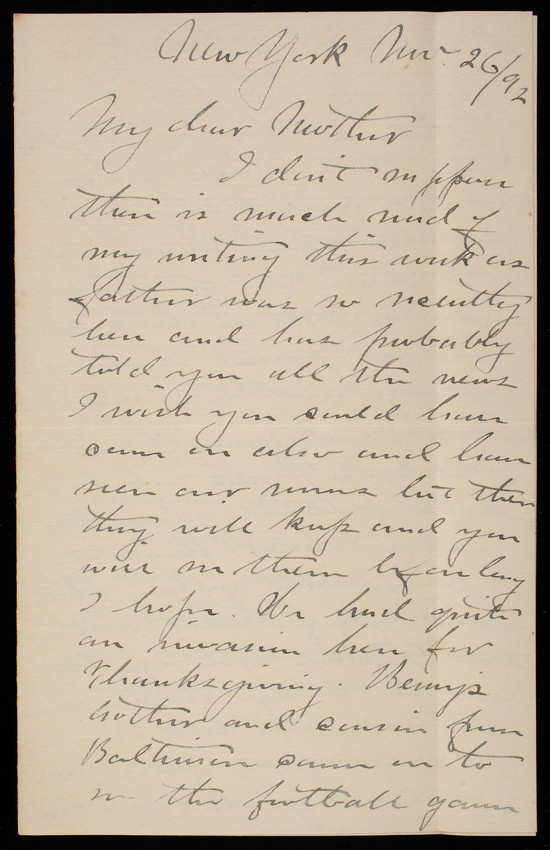 New York Nov. 26/92
My dear Mother
I don't suppose
there is much need of
my writing this week as
father was so recently
here and has probably
told you all the news
I wish you could have
come on also and have
seen our rooms but then
they will keep and you
will see them before long
I hope. We had quite
an invasion here for
Thanksgiving.
brother and cousin from
Baltimore came on to
see the football game